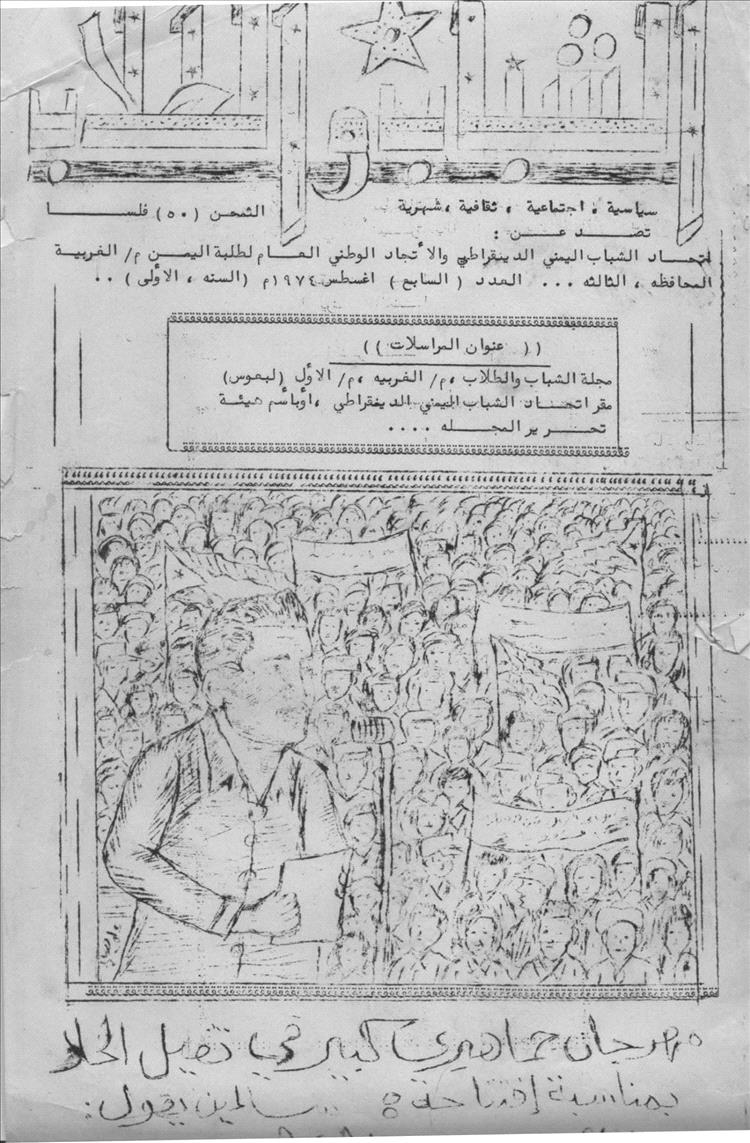 سياسية ، اجتماعية ، ثقافية ، شهرية الثمن (٥٠) فلسا
تصد عن :
اتحاد الشباب اليمني الديمقراطي والأتحاد الوطني العام لطلبة اليمن م/ الغربية
المحافظه ، الثالثه ... العدد (السابع) اغسطس ١٩٧٤م (السنه ، الأولى) ..
(( عنوان المراسلات ))
مجلة الشباب والطلاب ،م/ الغربيه ،م/ الأول (لبعوس)
مقر اتحاد الشباب اليمني الديمقراطي ،أوبأسم هيئة
تحرير المجله ....
مهرجان جماهيري كبير في ثقيل الخلا
بمناسبة إفتتاحة ... سالمين يقول: